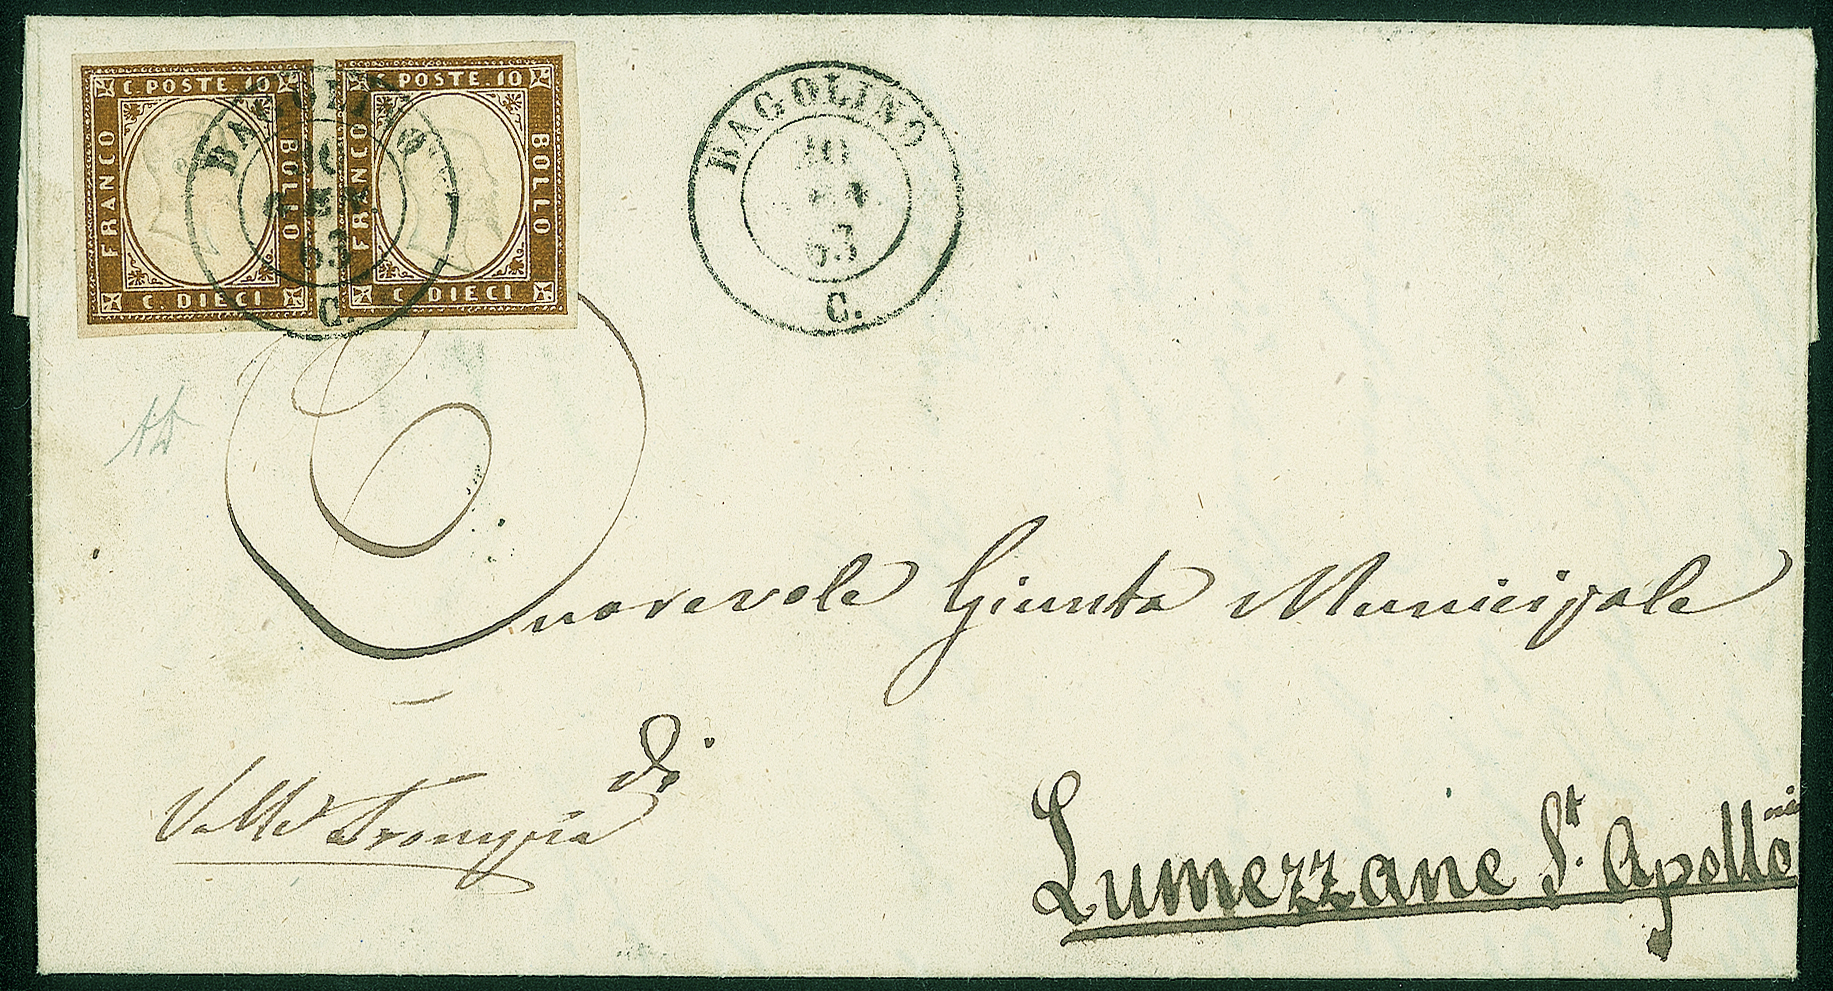 C. POSTE. 10
FRANCO
BOLLO
C. DIECI
C. POSTE. 10
FRANCO
BOLLO
C. DIECI
BAGOLINO
10
63
C.
BAGOLINO
10
63
C.
Onorevole Giunta Municipale
di
Valle Trompia
Lumezzane St. Apollonio